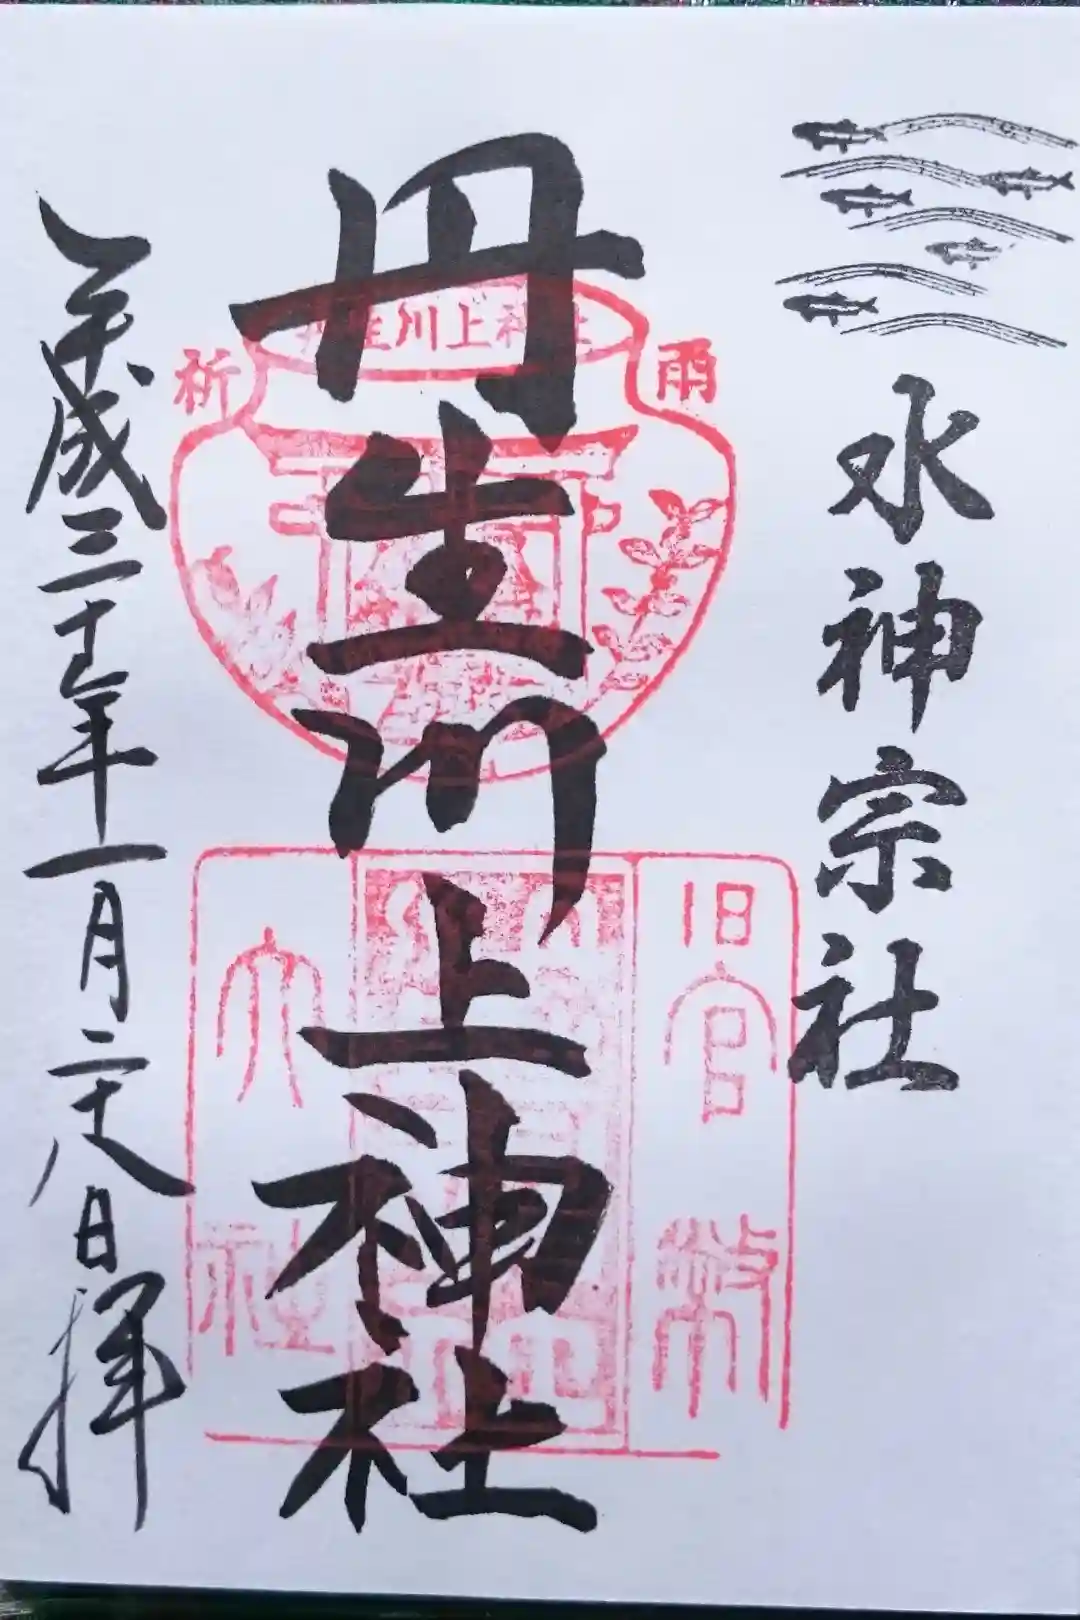 水神宗社
丹生川上神社
平成三十年一月二十八日拝
丹生川上神社
祈雨
旧官幣大社